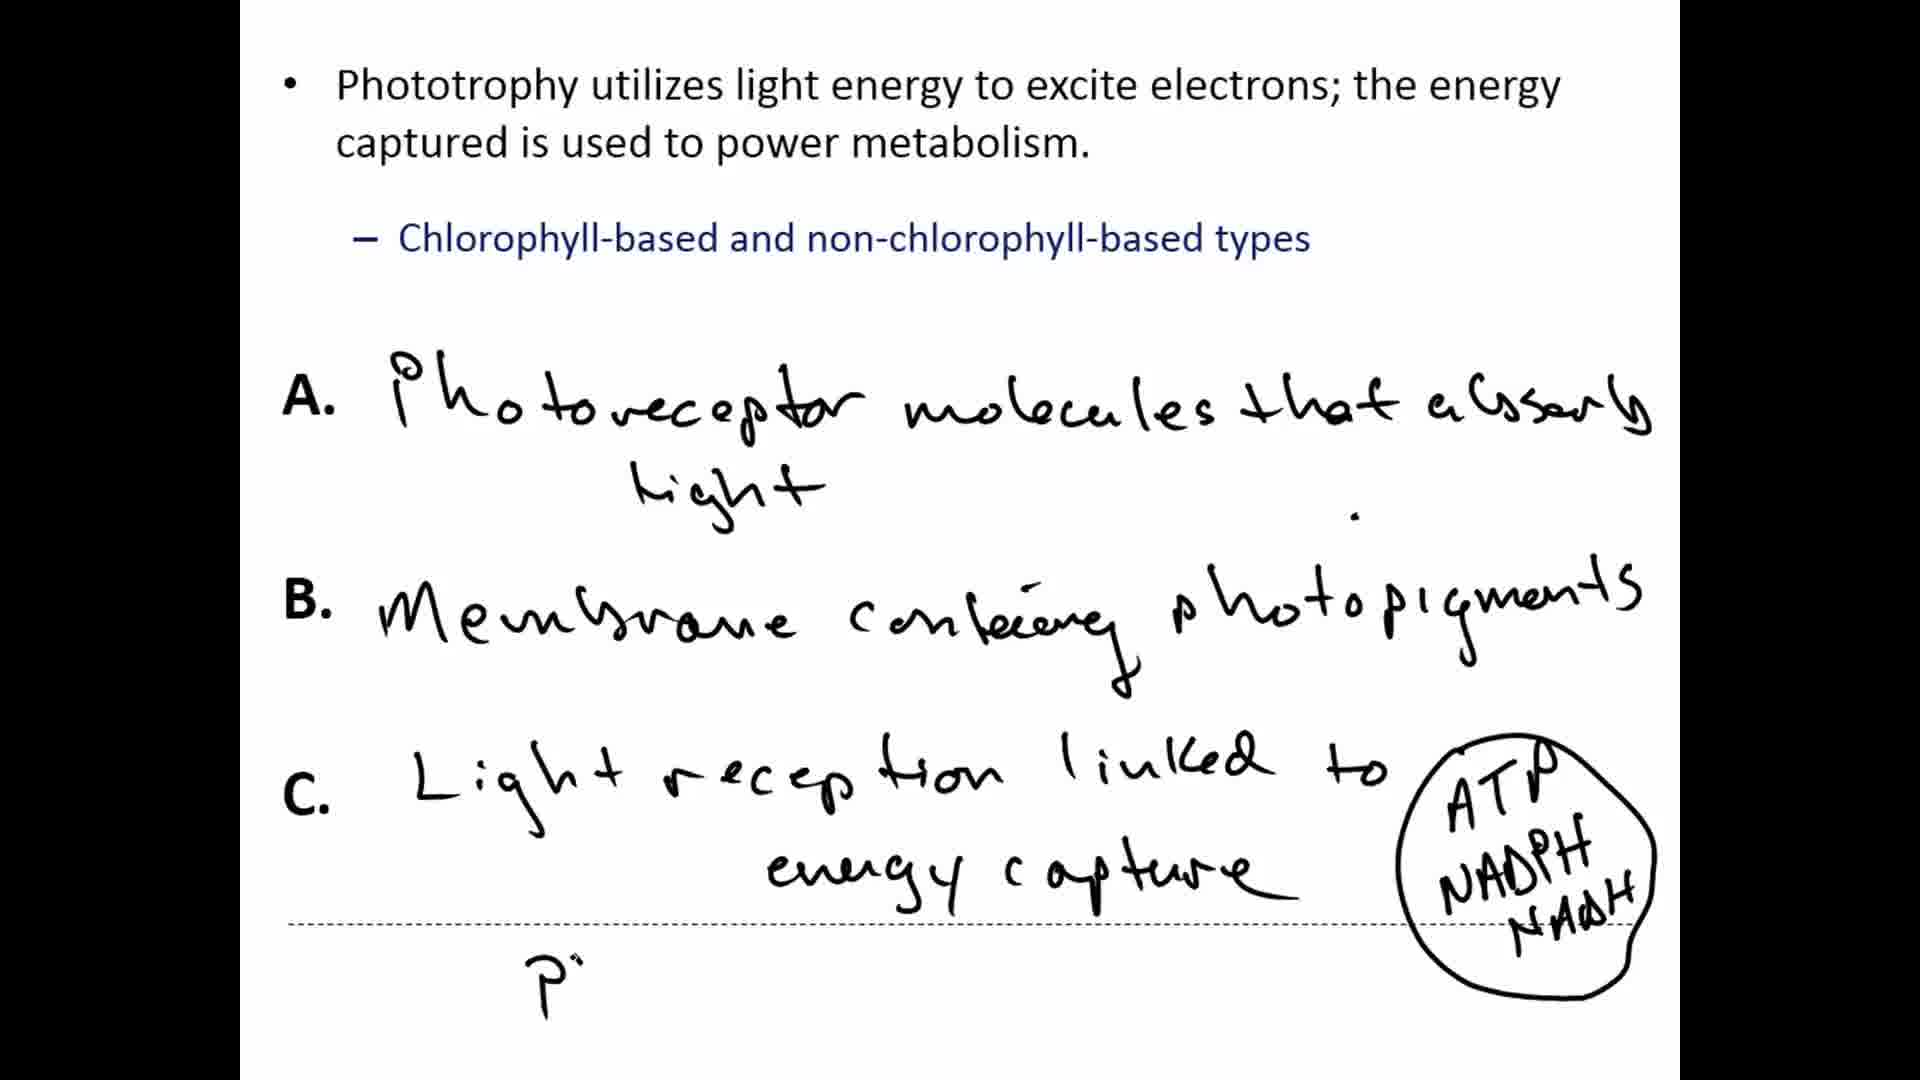 • Phototrophy utilizes light energy to excite electrons; the energy
captured is used to power metabolism.
– Chlorophyll-based and non-chlorophyll-based types
A. Photoreceptor molecules that absorb
light
B. Membrane containing photopigments
C. Light reception linked to
energy capture
ATP
NADPH
NADH
Pi